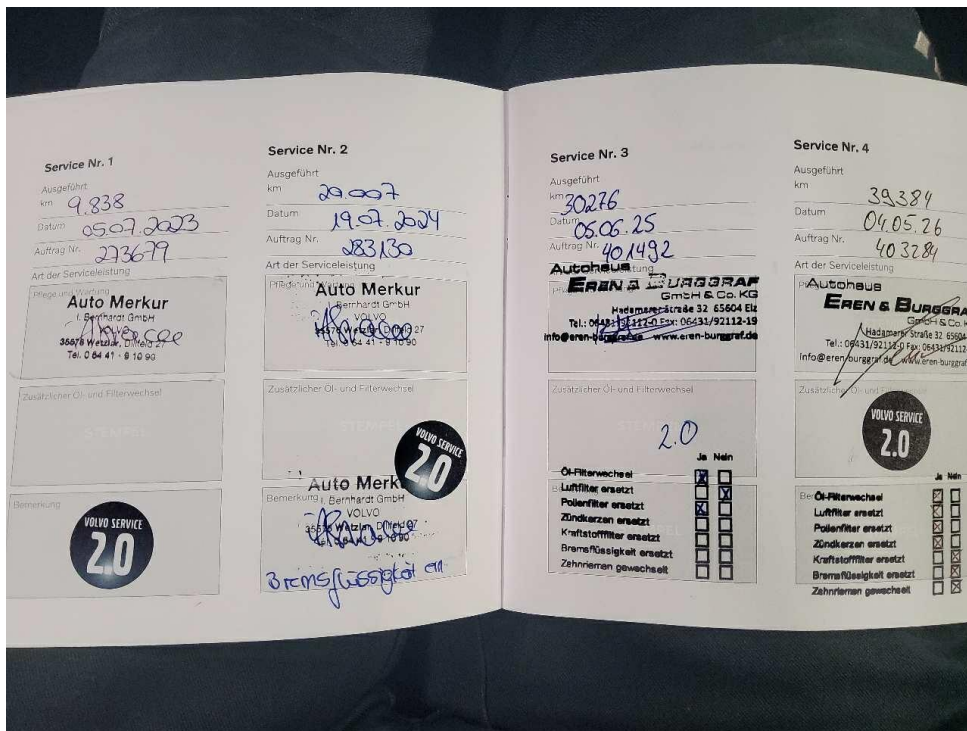 Service Nr. 1
Ausgeführt
km 9.838
Datum 05.07.2023
Auftrag Nr. 273679
Art der Serviceleistung
Pflege und Wartung
Auto Merkur
I. Bernhardt GmbH
VOLVO
35578 Wetzlar, Dillfeld 27
Tel. 0 64 41 - 9 10 90
Zusätzlicher Öl- und Filterwechsel
STEMPEL
Bemerkung
VOLVO SERVICE
2.0
Service Nr. 2
Ausgeführt
km 20.007
Datum 19.07.2024
Auftrag Nr. 283130
Art der Serviceleistung
Pflege und Wartung
Auto Merkur
I. Bernhardt GmbH
VOLVO
35578 Wetzlar, Dillfeld 27
Tel. 0 64 41 - 9 10 90
Zusätzlicher Öl- und Filterwechsel
STEMPEL
VOLVO SERVICE
2.0
Auto Merkur
Bemerkung I. Bernhardt GmbH
VOLVO
35578 Wetzlar, Dillfeld 27
Bremsflüssigkeit ern
Service Nr. 3
Ausgeführt
km 30276
Datum 05.06.25
Auftrag Nr. 401492
Autohaus
EREN & BURGGRAF
GmbH & Co. KG
Hadamarer Straße 32 65604 Elz
Tel.: 06431/92112-0 Fax: 06431/92112-19
info@eren-burggraf.de www.eren-burggraf.de
Zusätzlicher Öl- und Filterwechsel
2.0
Ja Nein
Öl-Filterwechsel
Luftfilter ersetzt
Pollenfilter ersetzt
Zündkerzen ersetzt
Kraftstofffilter ersetzt
Bremsflüssigkeit ersetzt
Zahnriemen gewechselt
Service Nr. 4
Ausgeführt
km 39384
Datum 04.05.26
Auftrag Nr. 403284
Art der Serviceleistung
Autohaus
EREN & BURGGRA
GmbH & Co. K
Hadamarer Straße 32 65604
Tel.: 06431/92112-0 Fax: 06431/92112
info@eren-burggraf.de www.eren-burggraf
Zusätzlicher Öl- und
VOLVO SERVICE
2.0
Ja Nein
Öl-Filterwechsel
Luftfilter ersetzt
Pollenfilter ersetzt
Zündkerzen ersetzt
Kraftstofffilter ersetzt
Bremsflüssigkeit ersetzt
Zahnriemen gewechselt